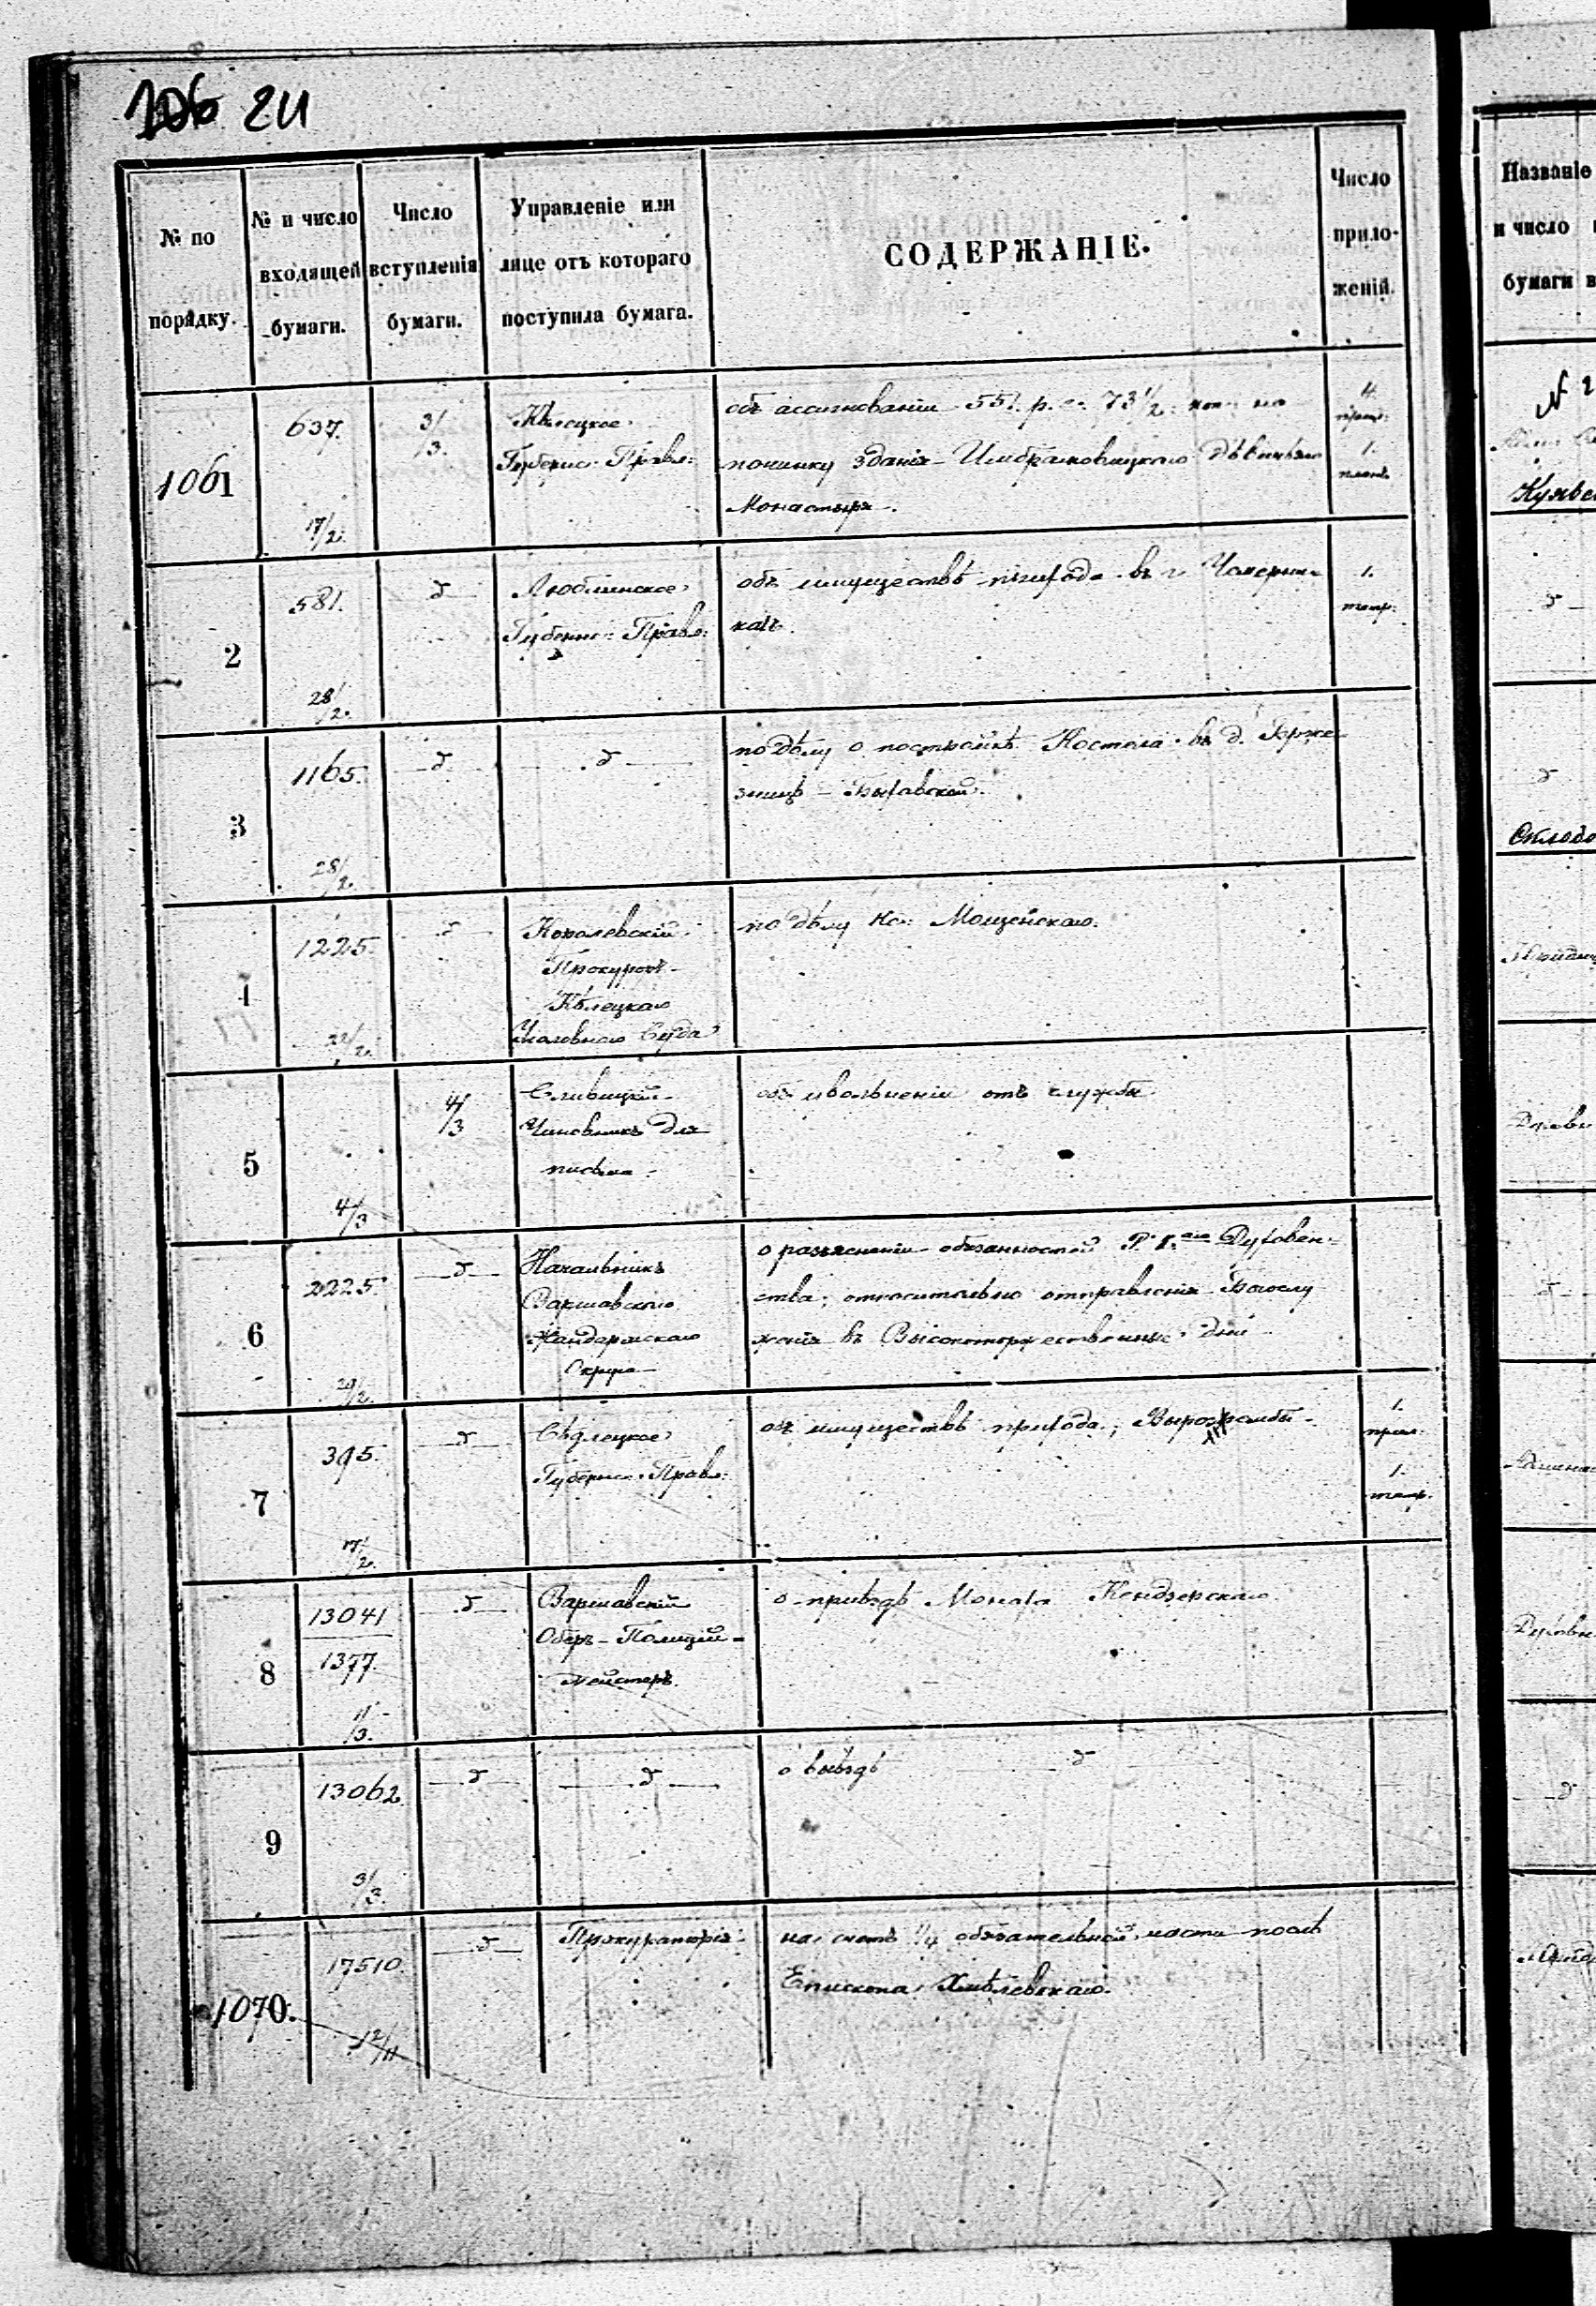 211
№ по порядку.
№ и число входящей бумаги.
Число вступленія бумаги.
Управленіе или лице отъ котораго поступила бумага.
СОДЕРЖАНІЕ.
Число приложеній.
1061
637.
17/2.
3/3.
Кѣлецкое
Губернс: Правл:
объ ассигнованіи 551 р. 73 1/2 коп на
починку зданія Имбрамовицкаго Дѣвичьяго
Монастыря.
4.
1.
планъ
2
581.
28/2.
д
Люблинское
Губернс: Правл:
объ имуществѣ прихода въ г Чемерни-
кахъ.
1.
3
1165.
28/2.
д
д
по дѣлу о постройкѣ Костела въ д.
Быхавской.
4
1225.
22/2.
д
Королевскій
Прокуроръ
Кѣлецкаго
Уголовнаго Суда
по дѣлу Кс: Мощенскаго.
5
4/3
4/3
Сливицкій
Чиновникъ для
письма
объ увольненіи отъ службы
6
2225
29/2.
д
Начальникъ
Варшавскаго
Жандармскаго
Округа
о разъясненіи обязанностей Р. К.аго Духовен-
ства, относительно отправленія Богослу
женія въ Высокоторжественные дни
7
395.
17/2.
д
Сѣдлецкое
Губернс: Правл:
объ имуществѣ прихода,
1.
1.
8
13041
1377.
1/3.
д
Варшавскій
Оберъ-Полицій-
мейстеръ.
о приѣздѣ Монаха Кендзерскаго
9
13062
3/3.
д
д
о выѣздѣ д
1070.
17510.
12/11
д
Прокураторія
на счетъ 1/4 обязательной части послѣ
Епископа Хмѣлевскаго.
Названіе
и число
бумаги в
№ 2
д
д
д
д